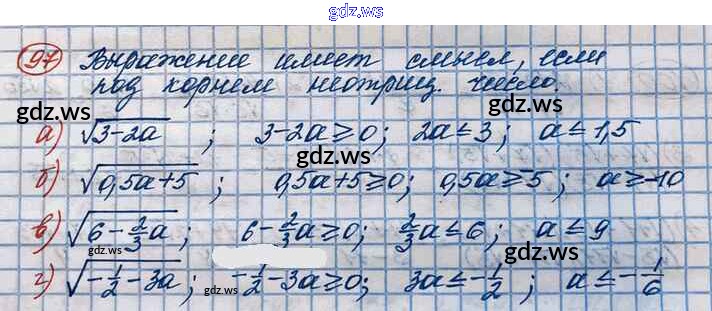 gdz.ws
97 Выражение имеет смысл, если
под корнем неотриц. число.
gdz.ws
а) √3-2a ; 3-2a≥0; 2a≤3; a≤1,5
gdz.ws
б) √0,5a+5 ; 0,5a+5≥0; 0,5a≥-5; a≥-10
в) √6-2/3a ; 6-2/3a≥0; 2/3a≤6; a≤9
gdz.ws gdz.ws
г) √-1/2-3a ; -1/2-3a≥0; 3a≤-1/2; a≤-1/6
gdz.ws
gdz.ws